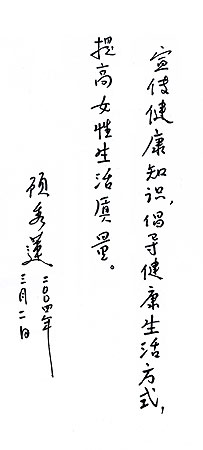 宣传健康知识，倡导健康生活方式，
提高女性生活质量。
顾秀莲
二〇〇四年
三月二日